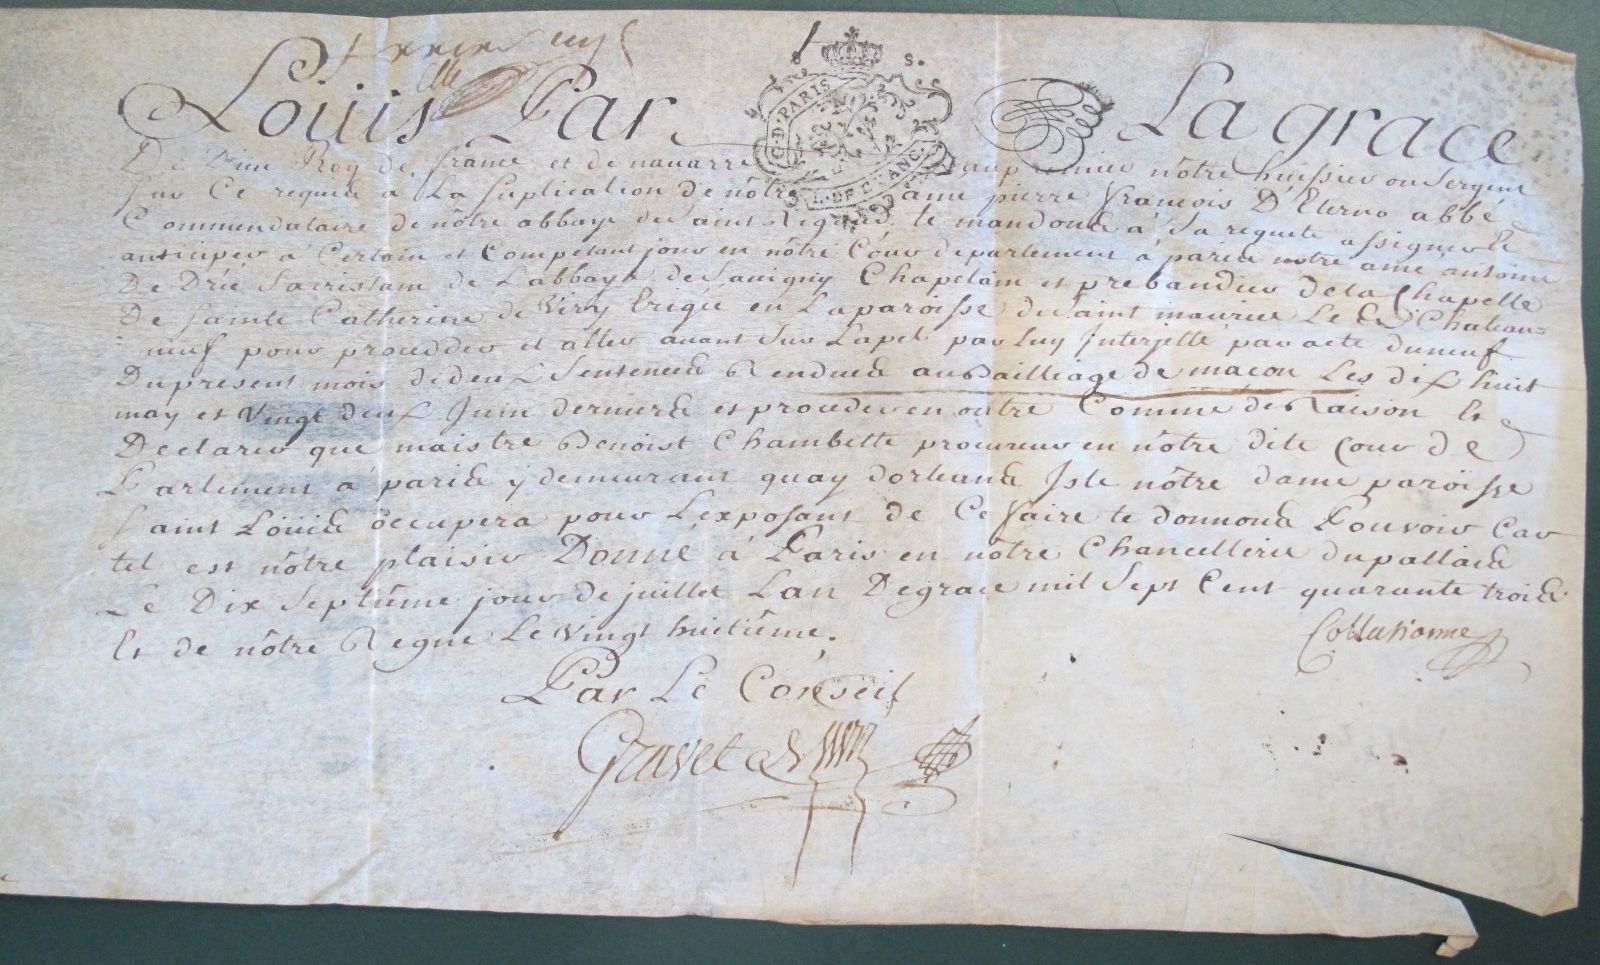 8 s.
G. D. PARIS
Louis Par La grace
De Dieu Roy de france et de navarre au premier nôtre huissier ou Sergent
Sur Ce requis à La Suplication de nôtre amé pierre francois D'Eterno abbé
Commendataire de nôtre abbaye de Saint Rigaud te mandons à Sa requete assigner Et
anticiper à Certain et Competant jour en nôtre Cour de parlement à paris notre amé antoine
De Drée Sacristain de Labbaye de Savigny Chapelain et prebandier de la Chapelle
De Sainte Catherine de Viry Erigée en La paroisse de Saint maurice Le Chateau=
neuf pour proceder et aller avant Sur Lapel par luy Interjetté par acte du neuf
Du present mois de deux Sentences Rendues au Bailliage de macon Les dix huit
may et Vingt deux Juin derniers et proceder en outre Comme de Raison Et
Declarer que maistre Benoist Chambette procureur en nôtre dite Cour de
Parlement à paris y demeurant quay dorleans Isle nôtre dame paroisse
Saint Loüis occupera pour Lexposant de Ce faire te donnons Pouvoir Car
tel est nôtre plaisir Donné à Paris en nôtre Chancellerie du pallais
Le Dix Septième jour de juillet Lan De grace mil Sept Cent quarante trois
Et de nôtre Regne Le Vingt huitième.
Collationné
Par Le Conseil
Gravet